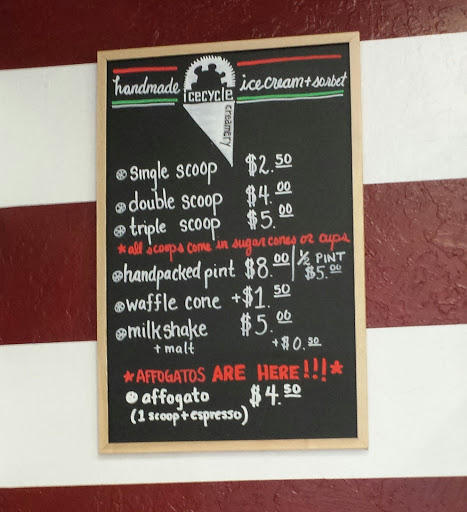 handmade icecream + sorbet
icecycle
creamery
single scoop $2.50
double scoop $4.00
triple scoop $5.00
*all scoops come in sugar cones or cups
handpacked pint $8.00 | ½ PINT $5.00
waffle cone +$1.50
milkshake $5.00
+ malt +$0.50
*AFFOGATOS ARE HERE!!!*
affogato $4.50
(1 scoop + espresso)